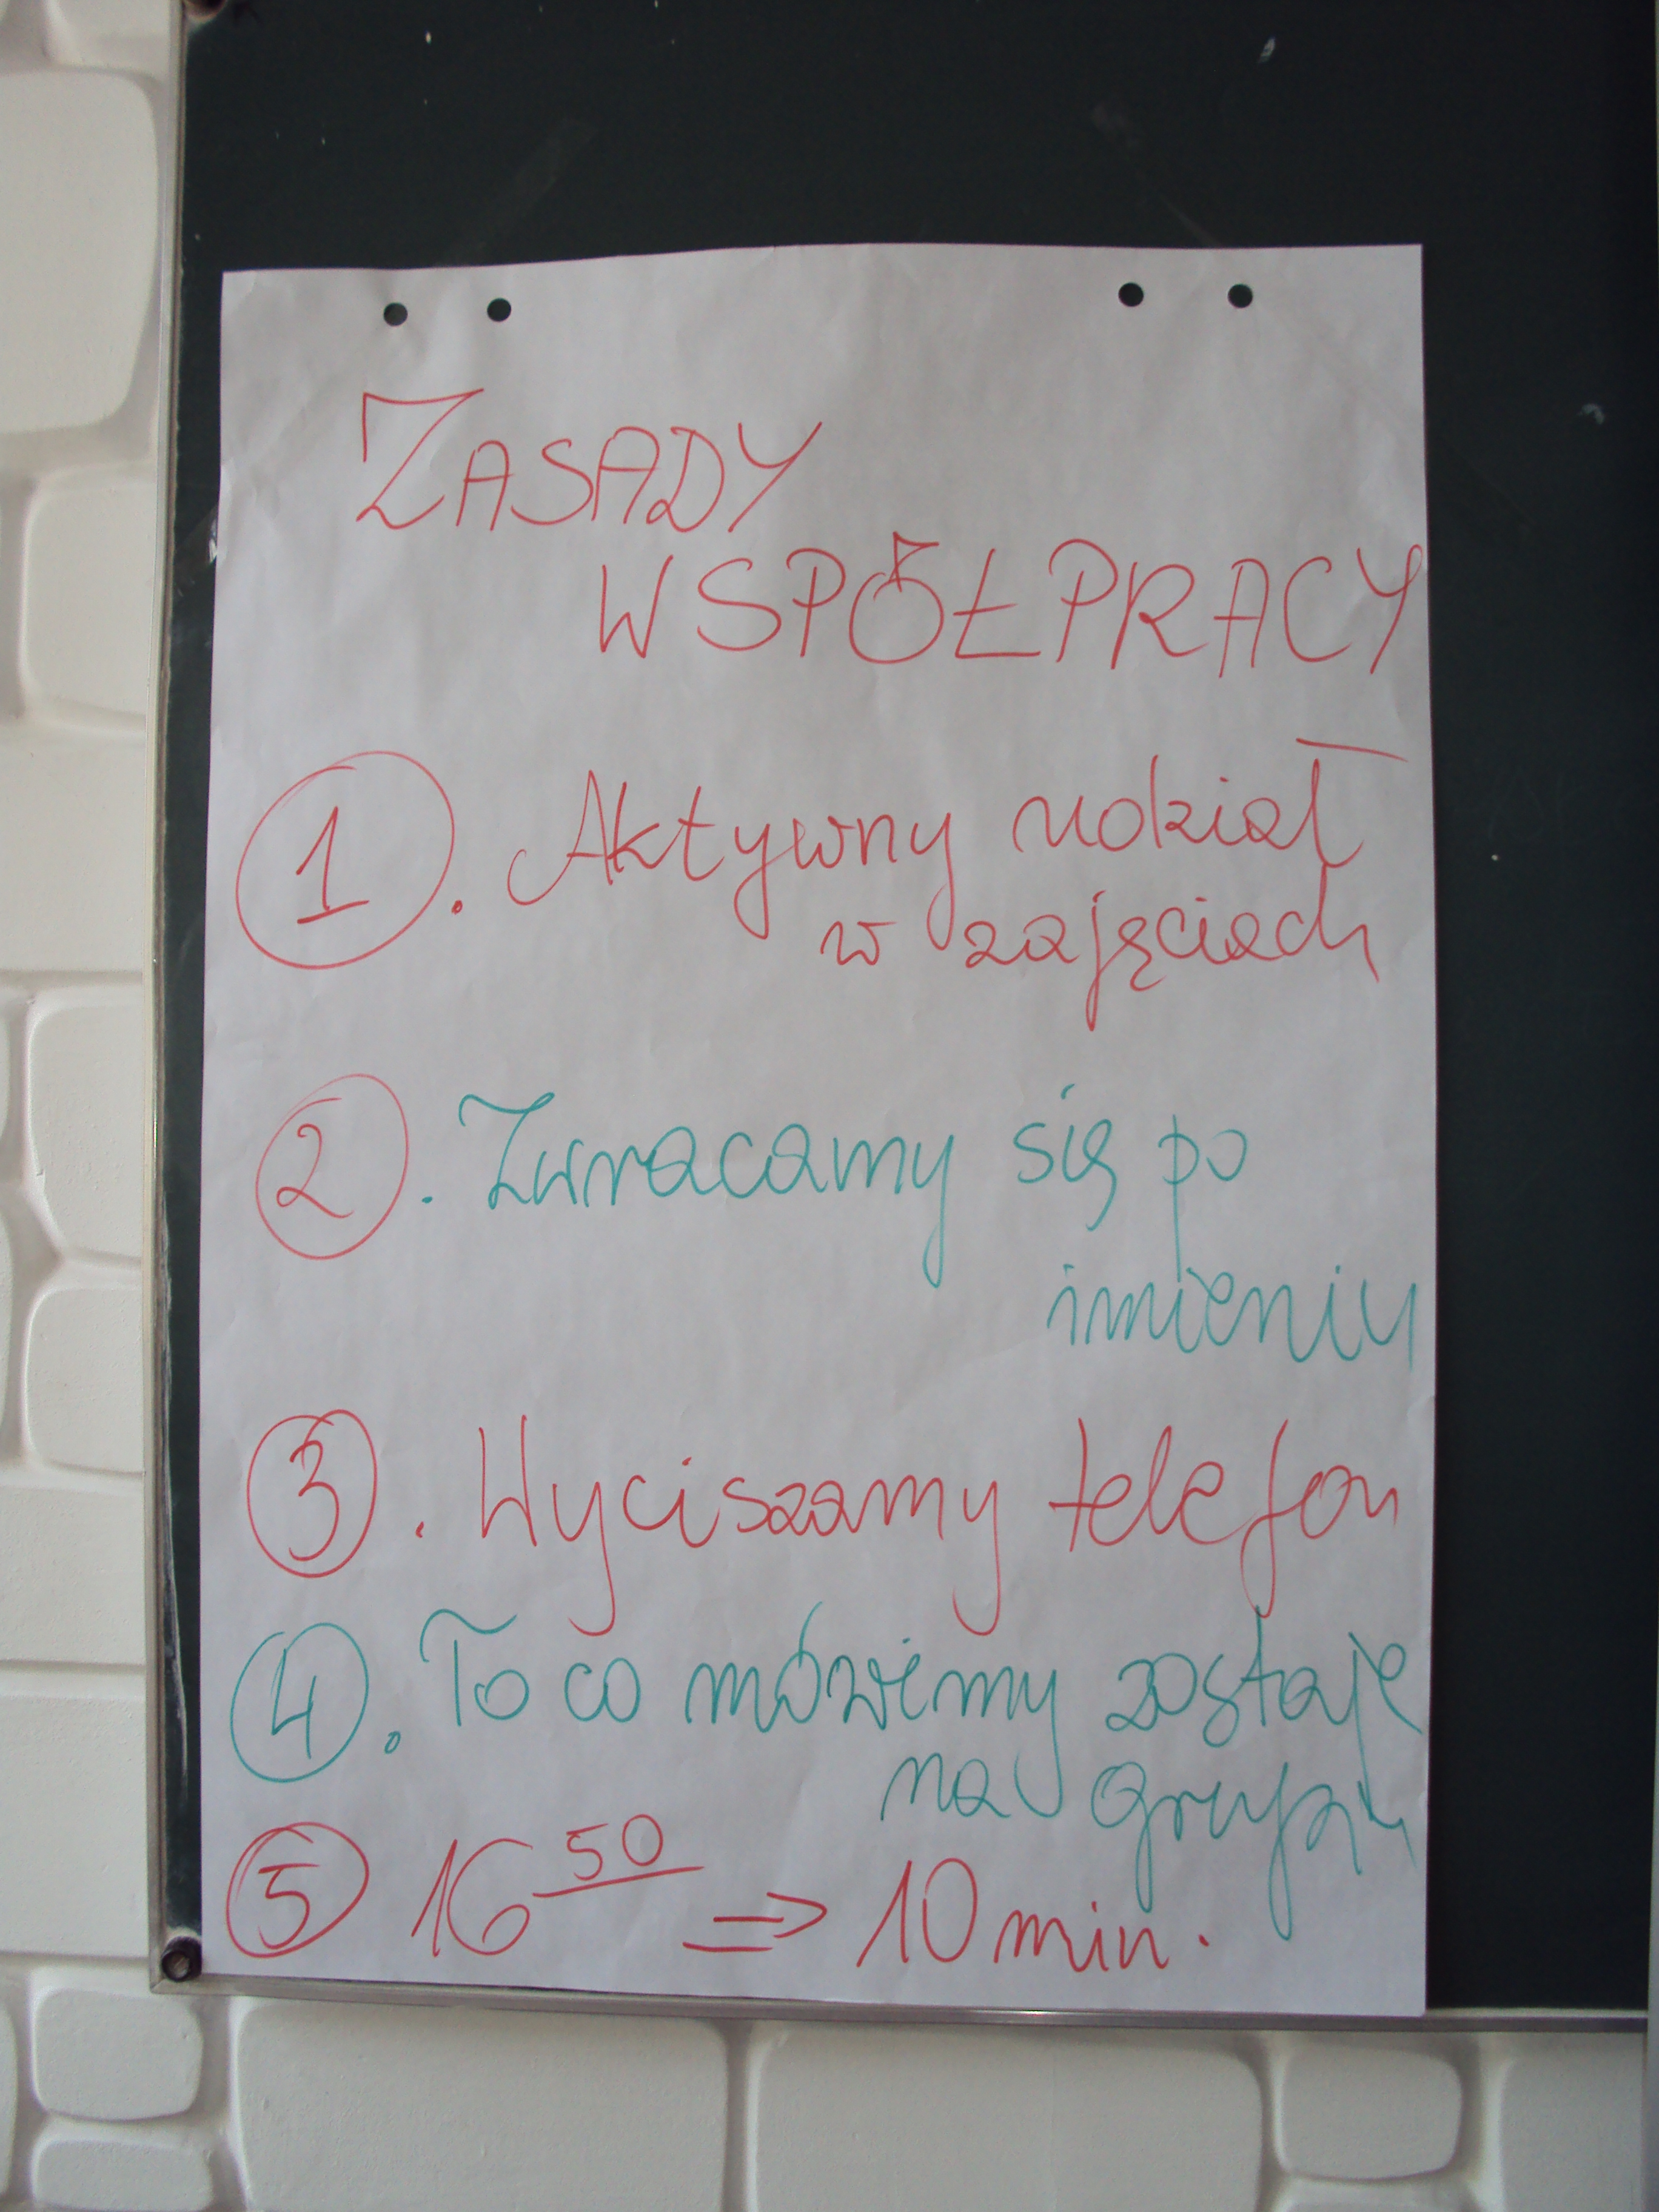 ZASADY
WSPÓŁPRACY
1. Aktywny udział
w zajęciach
2. Zwracamy się po
imieniu
3. Wyciszamy telefon
4. To co mówimy zostaje
na grupie
5 16⁵⁰ => 10 min.